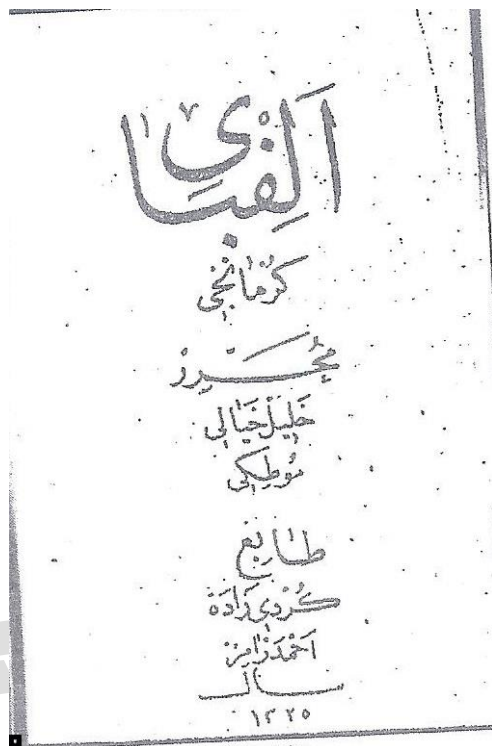 الفباى
كرمانجى
محرر
خليل خيالى
موطكى
طابع
كردى زاده
احمد رامز
سال
١٣٢٥